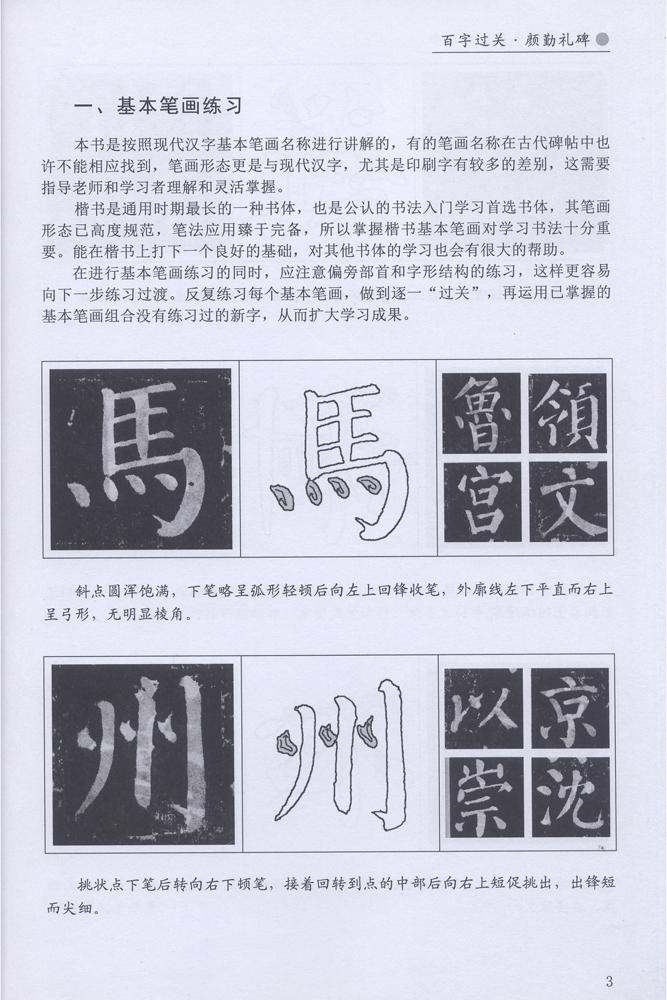 百字过关·颜勤礼碑
一、基本笔画练习
本书是按照现代汉字基本笔画名称进行讲解的，有的笔画名称在古代碑帖中也
许不能相应找到，笔画形态更是与现代汉字，尤其是印刷字有较多的差别，这需要
指导老师和学习者理解和灵活掌握。
楷书是通用时期最长的一种书体，也是公认的书法入门学习首选书体，其笔画
形态已高度规范，笔法应用臻于完备，所以掌握楷书基本笔画对学习书法十分重
要。能在楷书上打下一个良好的基础，对其他书体的学习也会有很大的帮助。
在进行基本笔画练习的同时，应注意偏旁部首和字形结构的练习，这样更容易
向下一步练习过渡。反复练习每个基本笔画，做到逐一“过关”，再运用已掌握的
基本笔画组合没有练习过的新字，从而扩大学习成果。
馬 馬 魯 領
宫 文
斜点圆浑饱满，下笔略呈弧形轻顿后向左上回锋收笔，外廓线左下平直而右上
呈弓形，无明显棱角。
州 州 以 京
崇 沈
挑状点下笔后转向右下顿笔，接着回转到点的中部后向右上短促挑出，出锋短
而尖细。
3